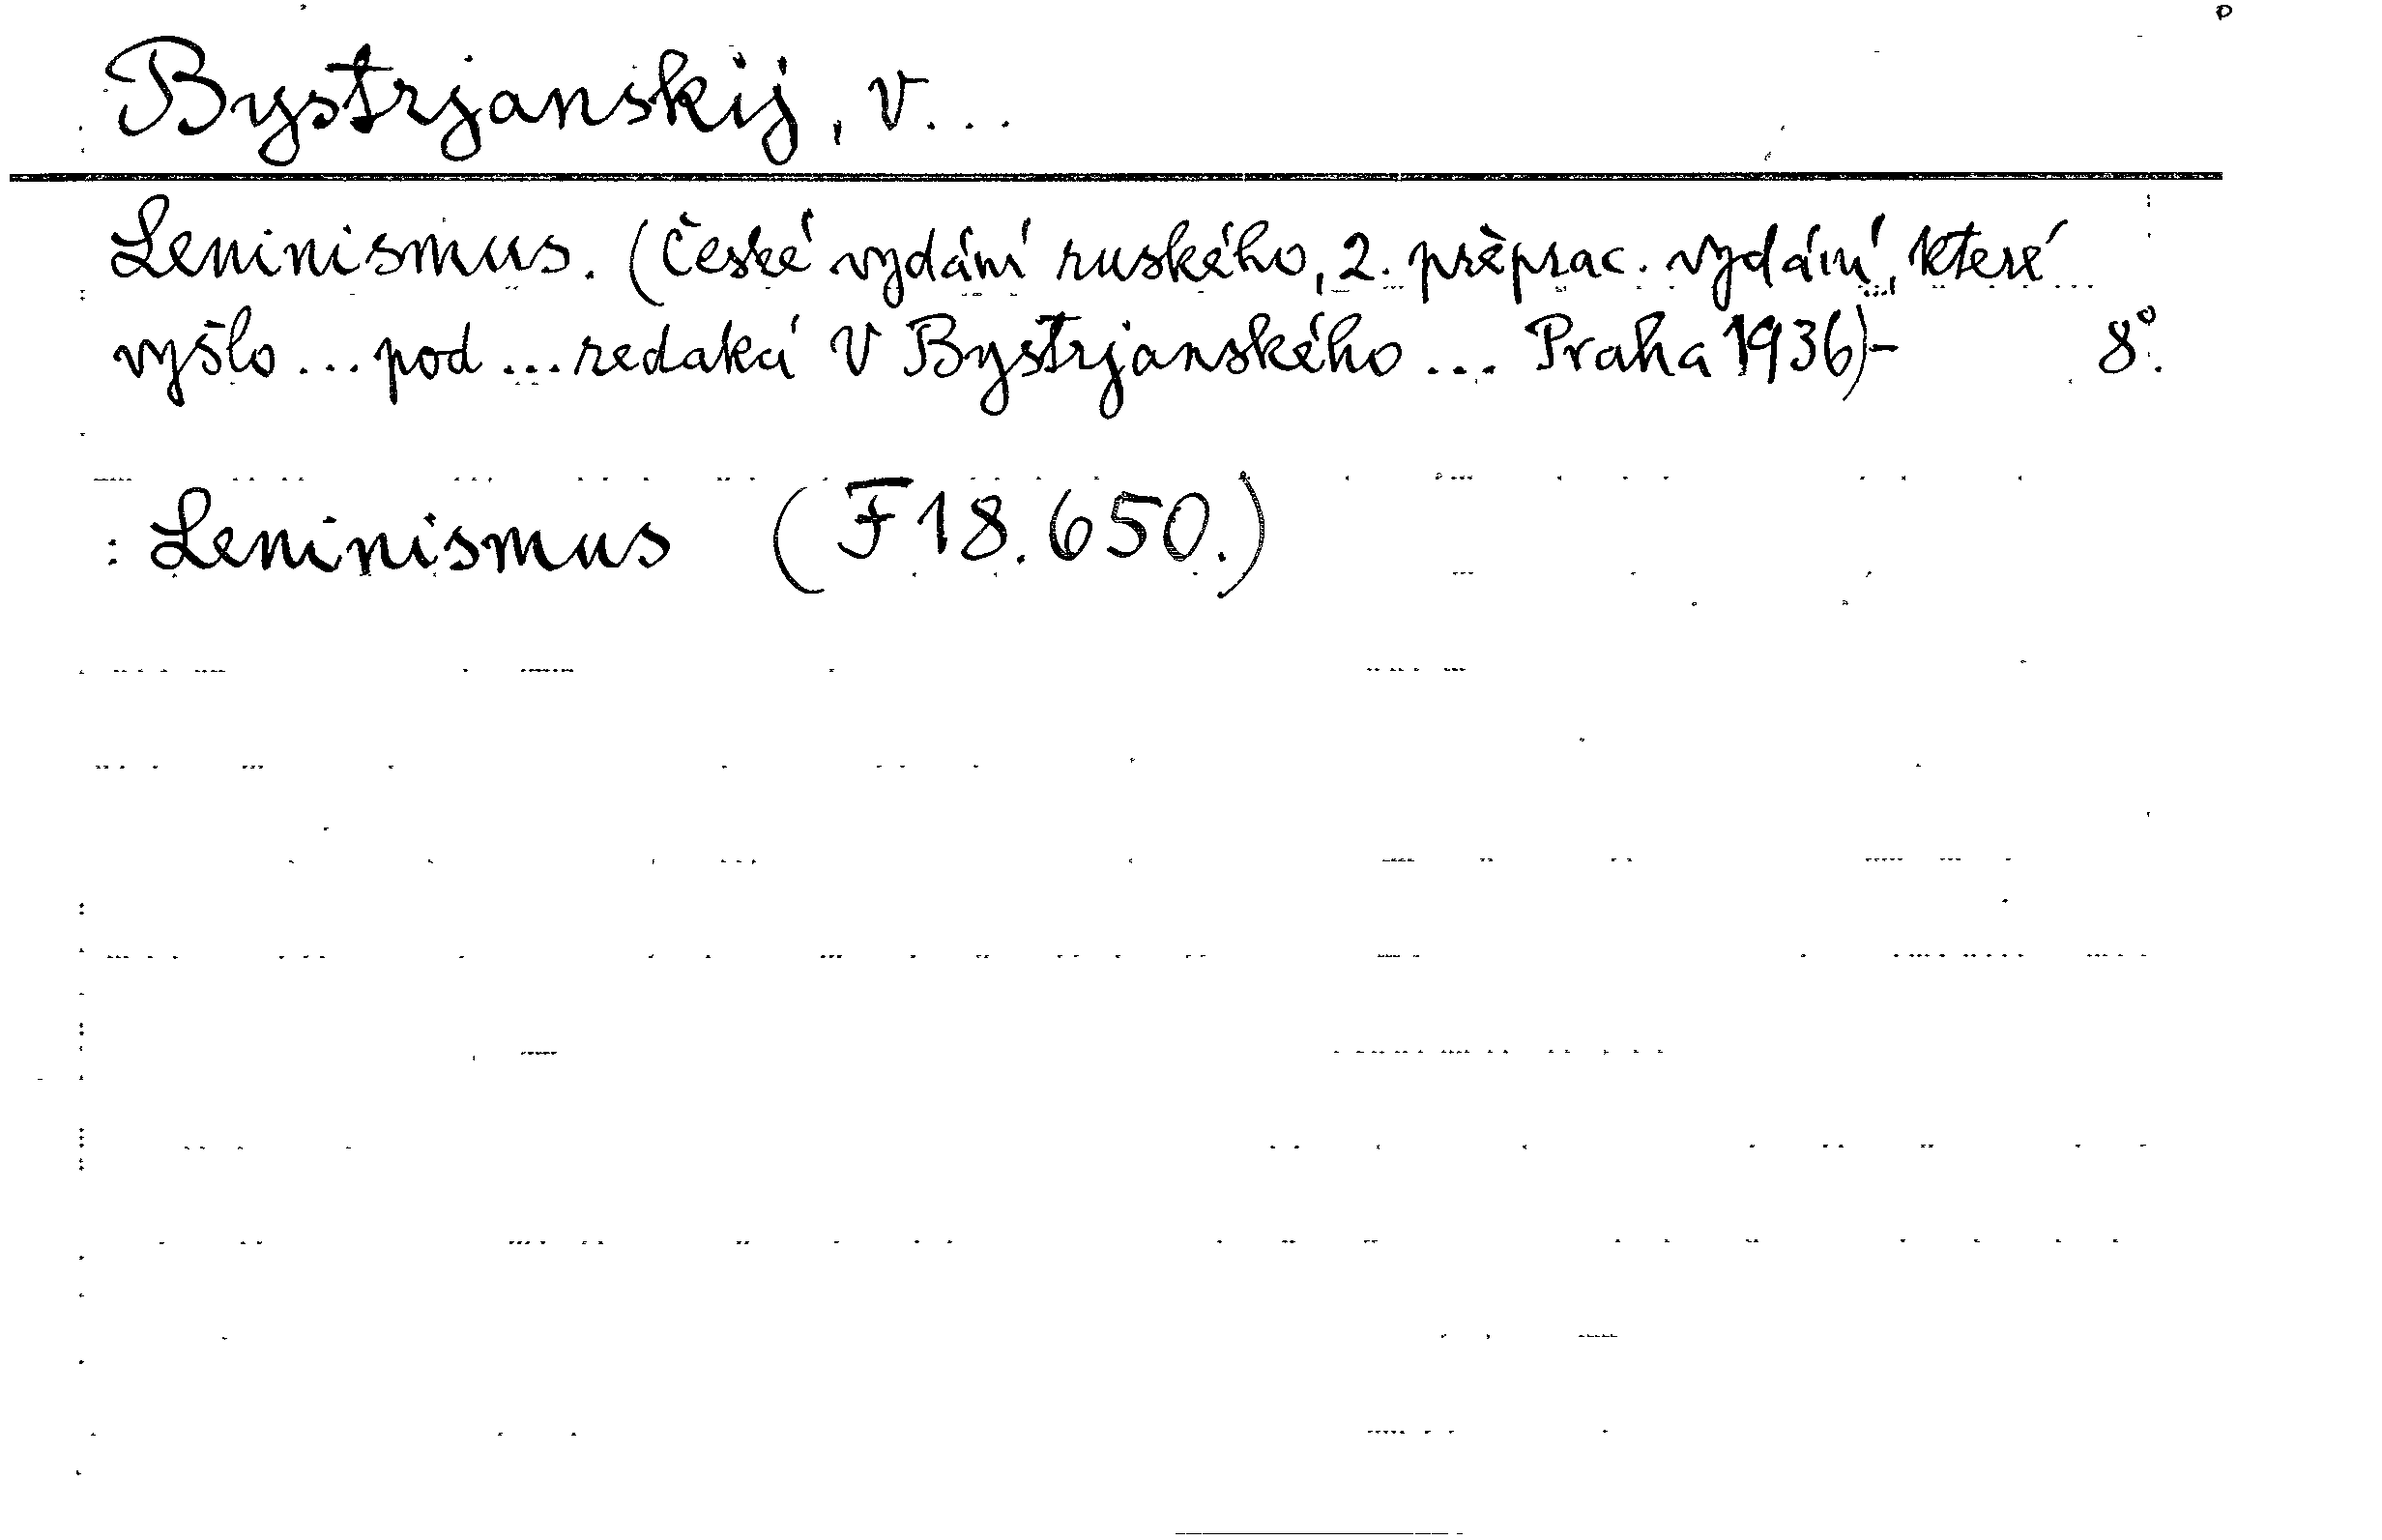 Bystrjanskij, V...
Leninismus. (České vydání ruského, 2. přeprac. vydání, které
vyšlo ... pod ... redakcí V Bystrjanského ... Praha 1936)- 8°.
: Leninismus (F 18.650.)